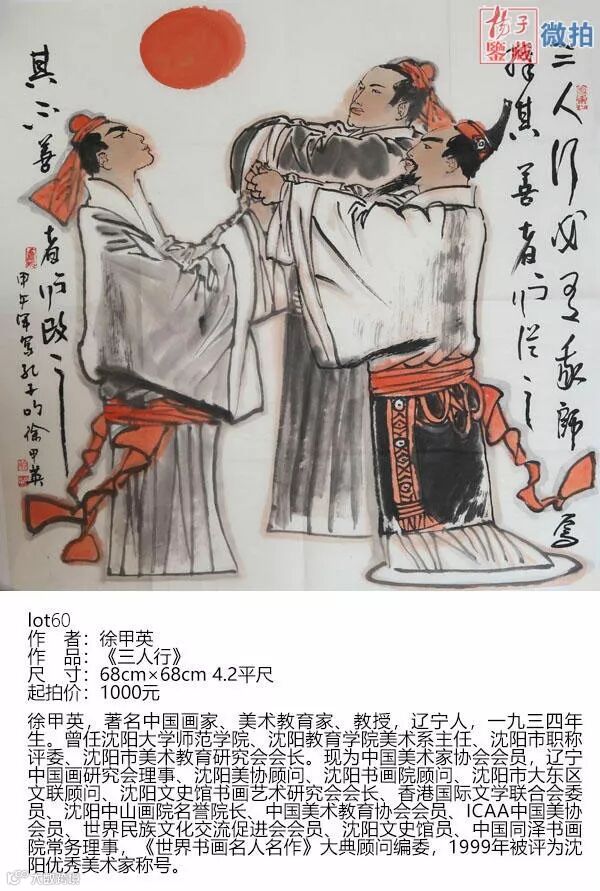 揚子
鑒藏
微拍
三人行必有我師焉
擇其善者而從之
其不善者而改之
甲午年写孔子句 徐甲英
lot60
作 者：徐甲英
作 品：《三人行》
尺 寸：68cm×68cm 4.2平尺
起拍价：1000元
徐甲英，著名中国画家、美术教育家、教授，辽宁人，一九三四年
生。曾任沈阳大学师范学院、沈阳教育学院美术系主任、沈阳市职称
评委、沈阳市美术教育研究会会长。现为中国美术家协会会员，辽宁
中国画研究会理事、沈阳美协顾问、沈阳书画院顾问、沈阳市大东区
文联顾问、沈阳文史馆书画艺术研究会会长、香港国际文学联合会委
员、沈阳中山画院名誉院长、中国美术教育协会会员、ICAA中国美协
会员、世界民族文化交流促进会会员、沈阳文史馆员、中国同泽书画
院常务理事，《世界书画名人名作》大典顾问编委，1999年被评为沈
阳优秀美术家称号。